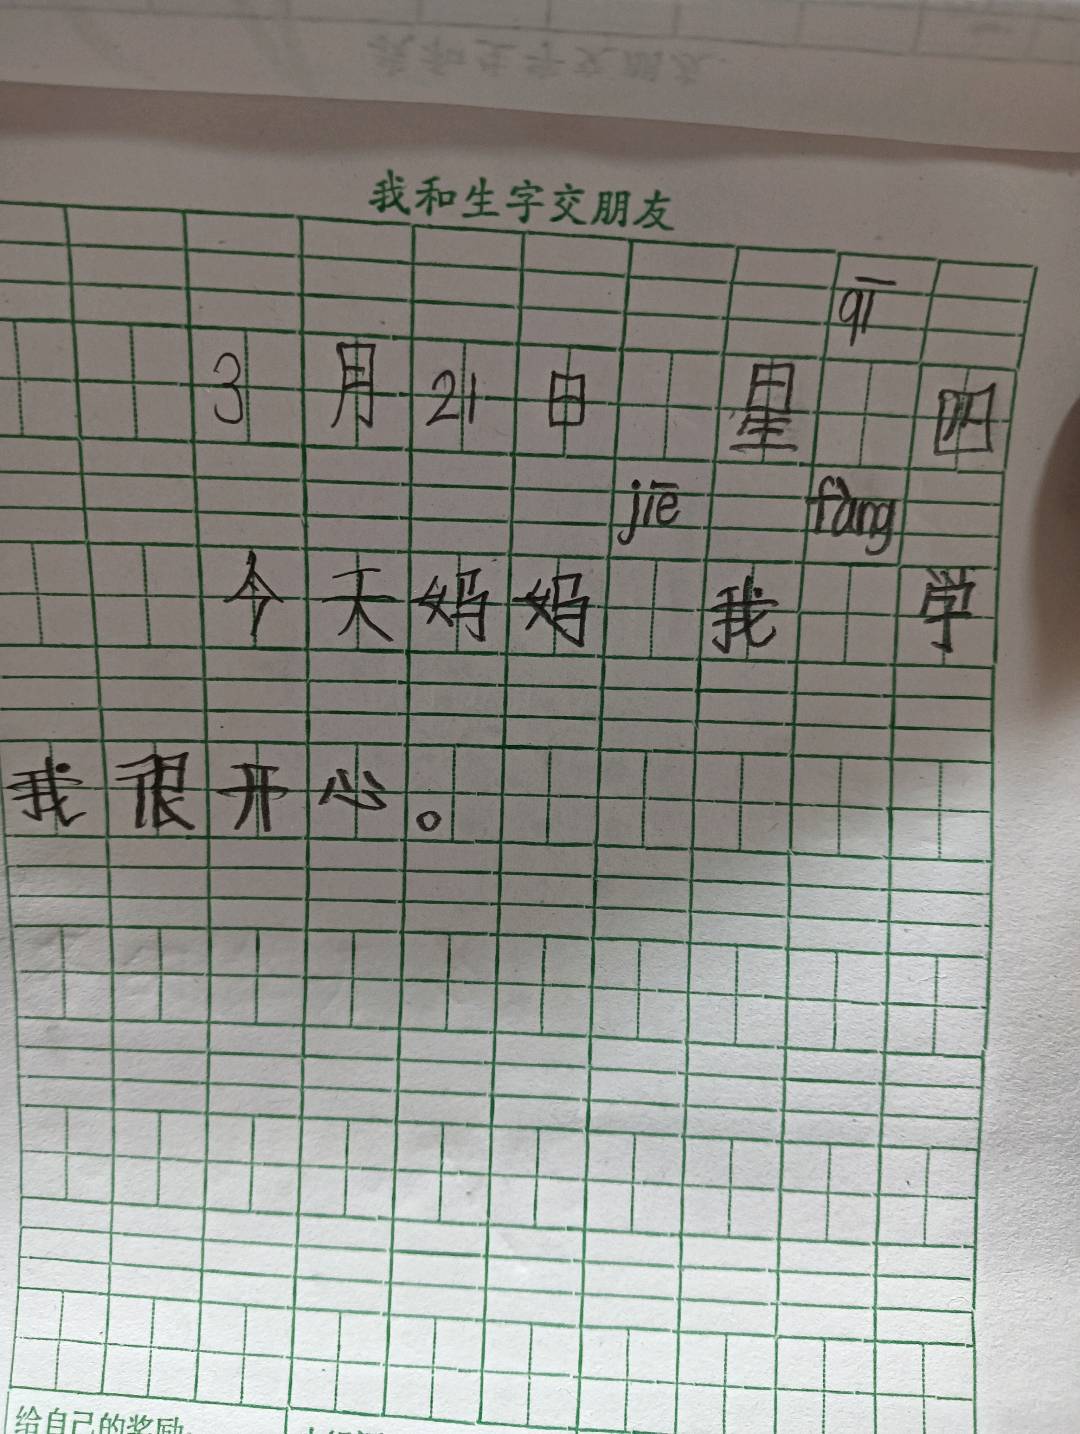 我和生字交朋友
qī
3月21日 星 四
jiē fàng
今天妈妈 我 学
我很开心。
给自己的奖励